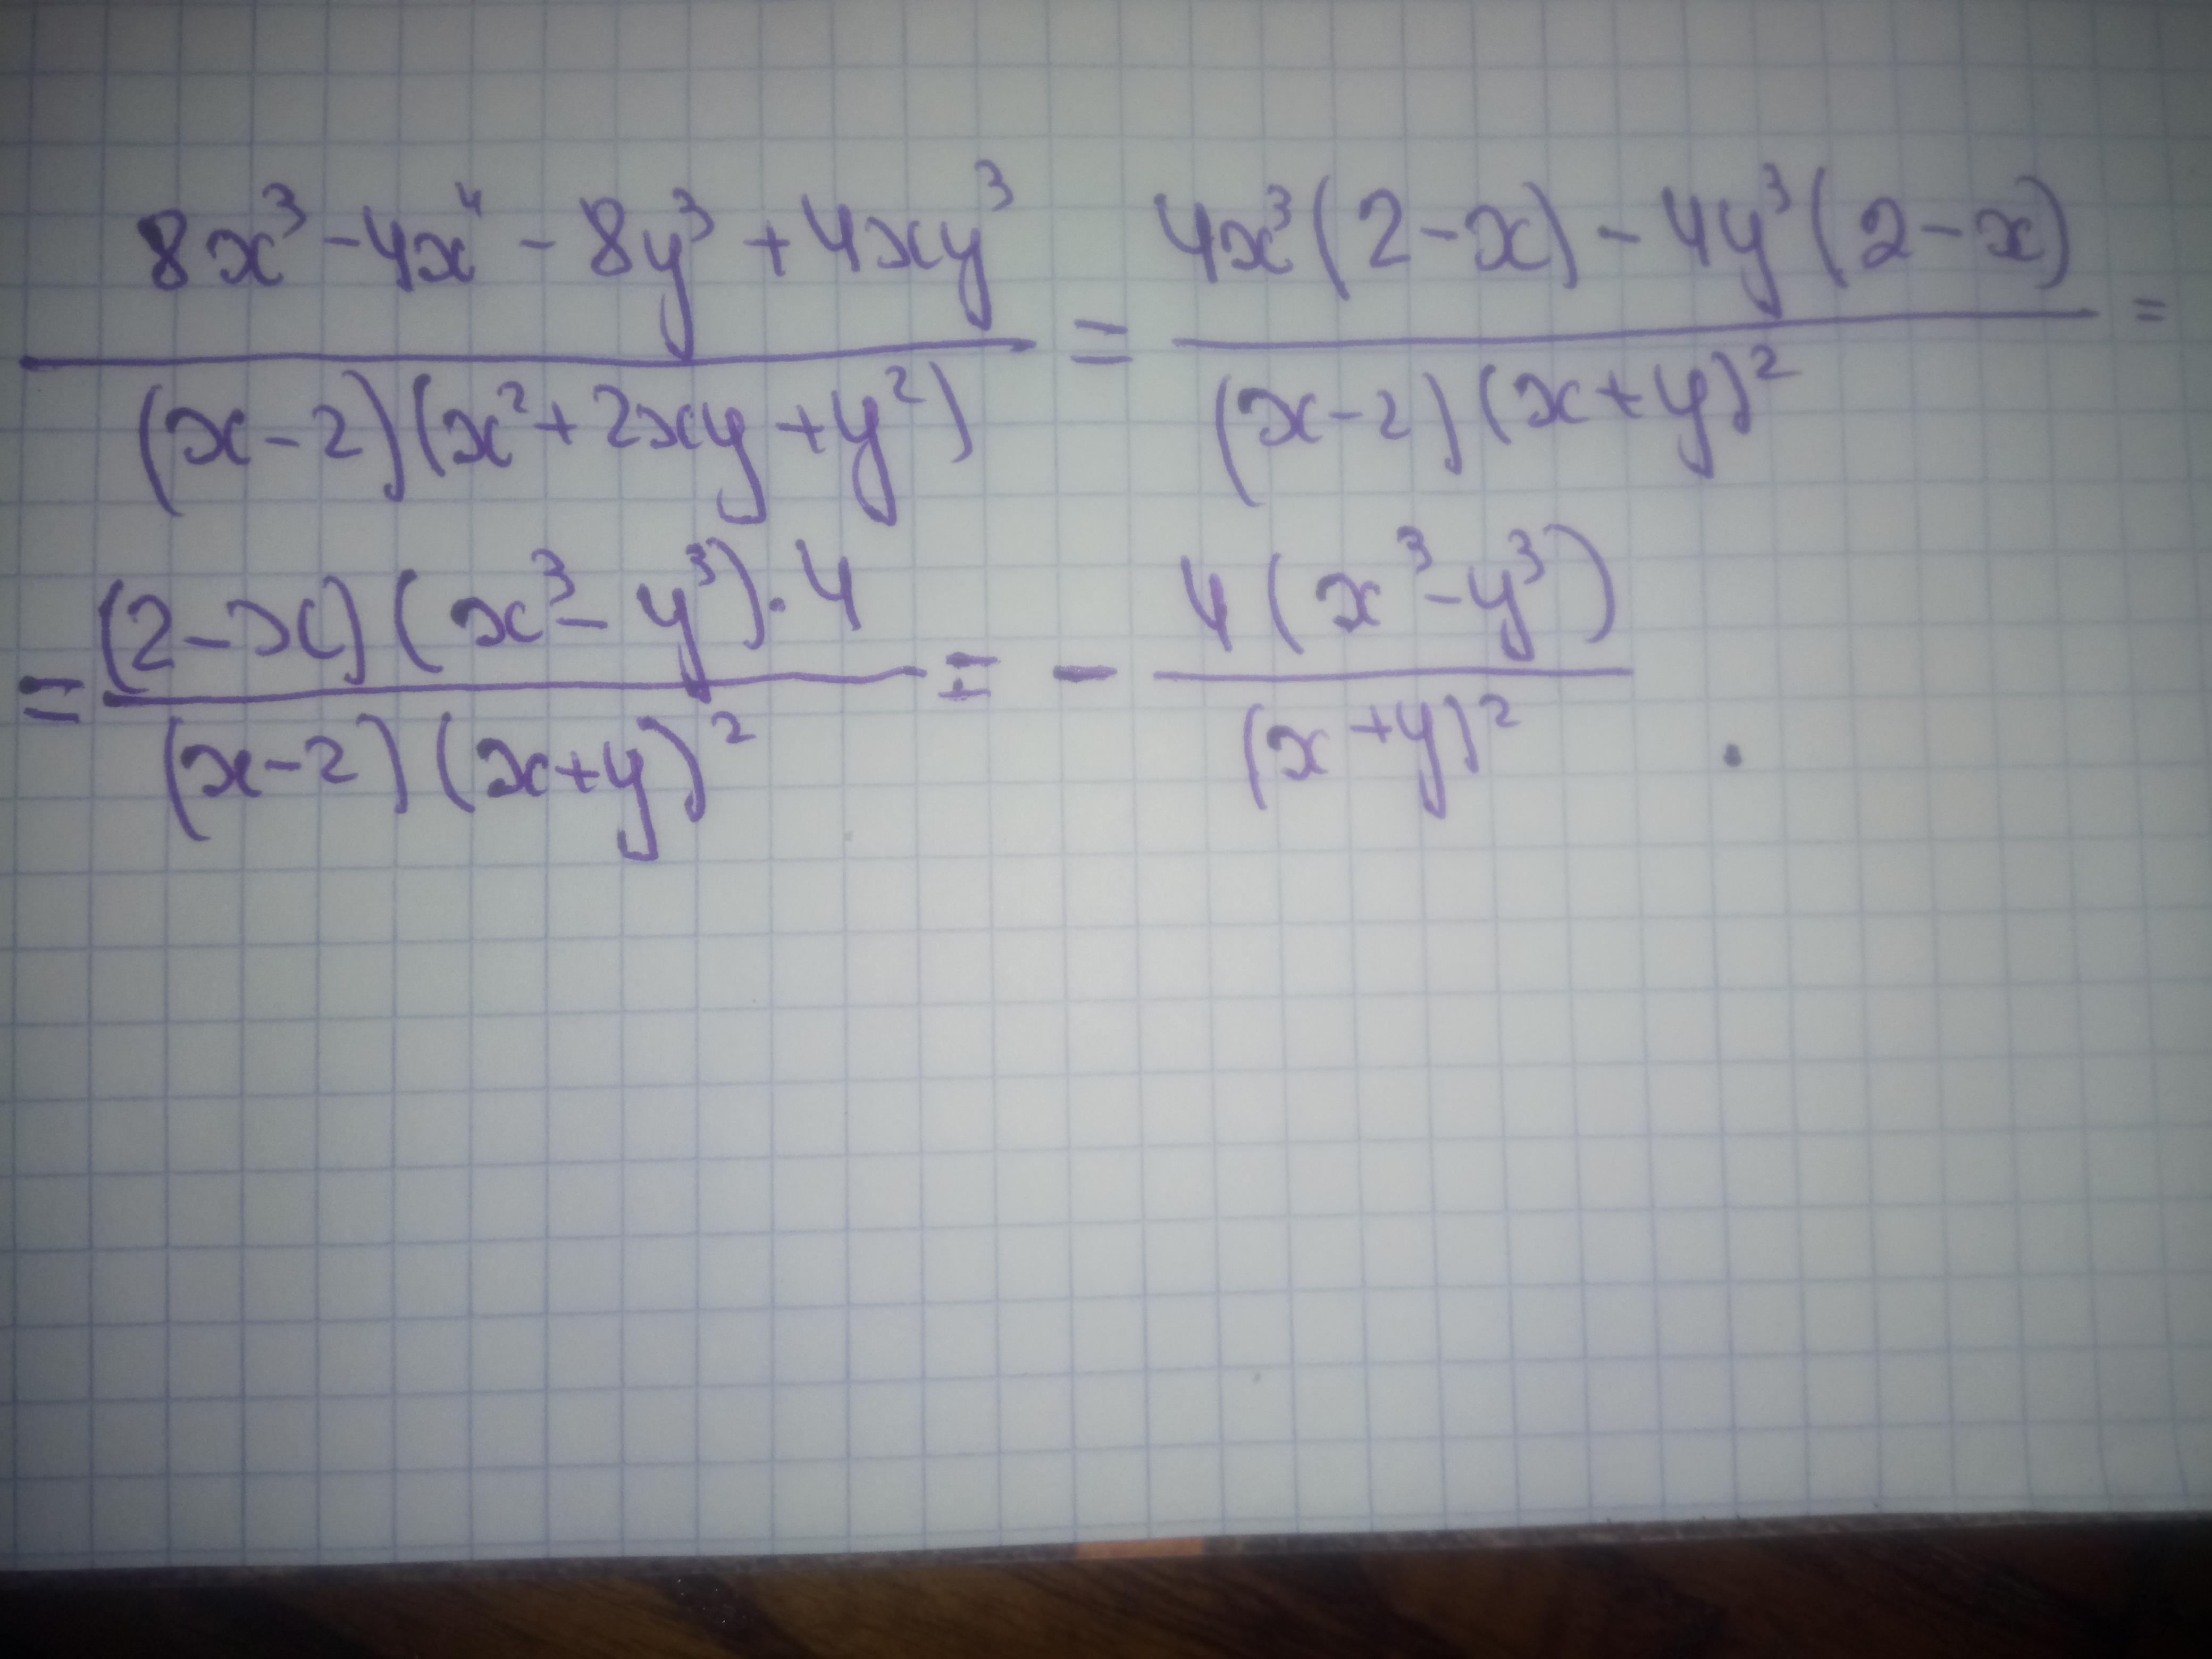 (8x³ - 4x⁴ - 8y³ + 4xy³) / ((x-2)(x² + 2xy + y²)) = (4x³(2-x) - 4y³(2-x)) / ((x-2)(x+y)²) =
= ((2-x)(x³ - y³)·4) / ((x-2)(x+y)²) = - (4(x³ - y³)) / ((x+y)²) .